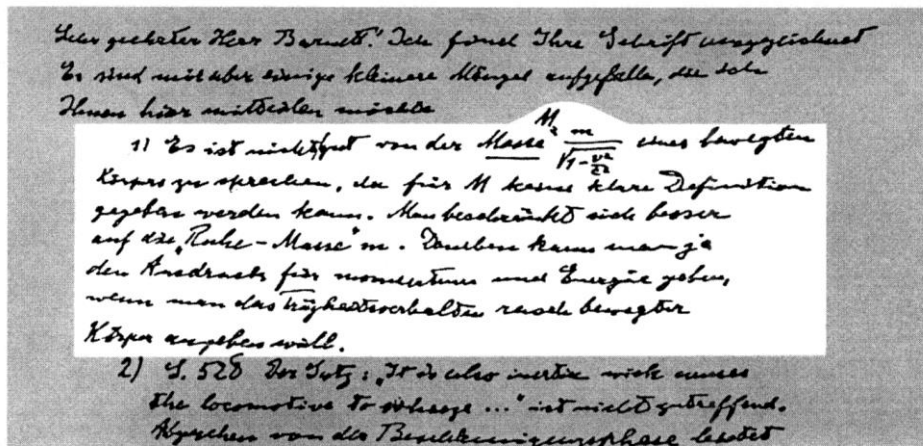 Sehr geehrter Herr Barnett! Ich fand Ihre Schrift ausgezeichnet
Es sind mir aber einige kleinere Mängel aufgefallen, die ich
Ihnen hier mitteilen möchte
1) Es ist nicht gut von der Masse M = m/√(1-v²/c²) eines bewegten
Körpers zu sprechen, da für M keine klare Definition
gegeben werden kann. Man beschränkt sich besser
auf die „Ruhe-Masse" m. Daneben kann man ja
den Ausdruck für momentum und Energie geben,
wenn man das Trägheitsverhalten rasch bewegter
Körper angeben will.
2) S. 528 Der Satz: „It is also inertia wich causes
the locomotive to wheeze ..." ist nicht zutreffend.
Abgesehen von der Beschleunigungsphase